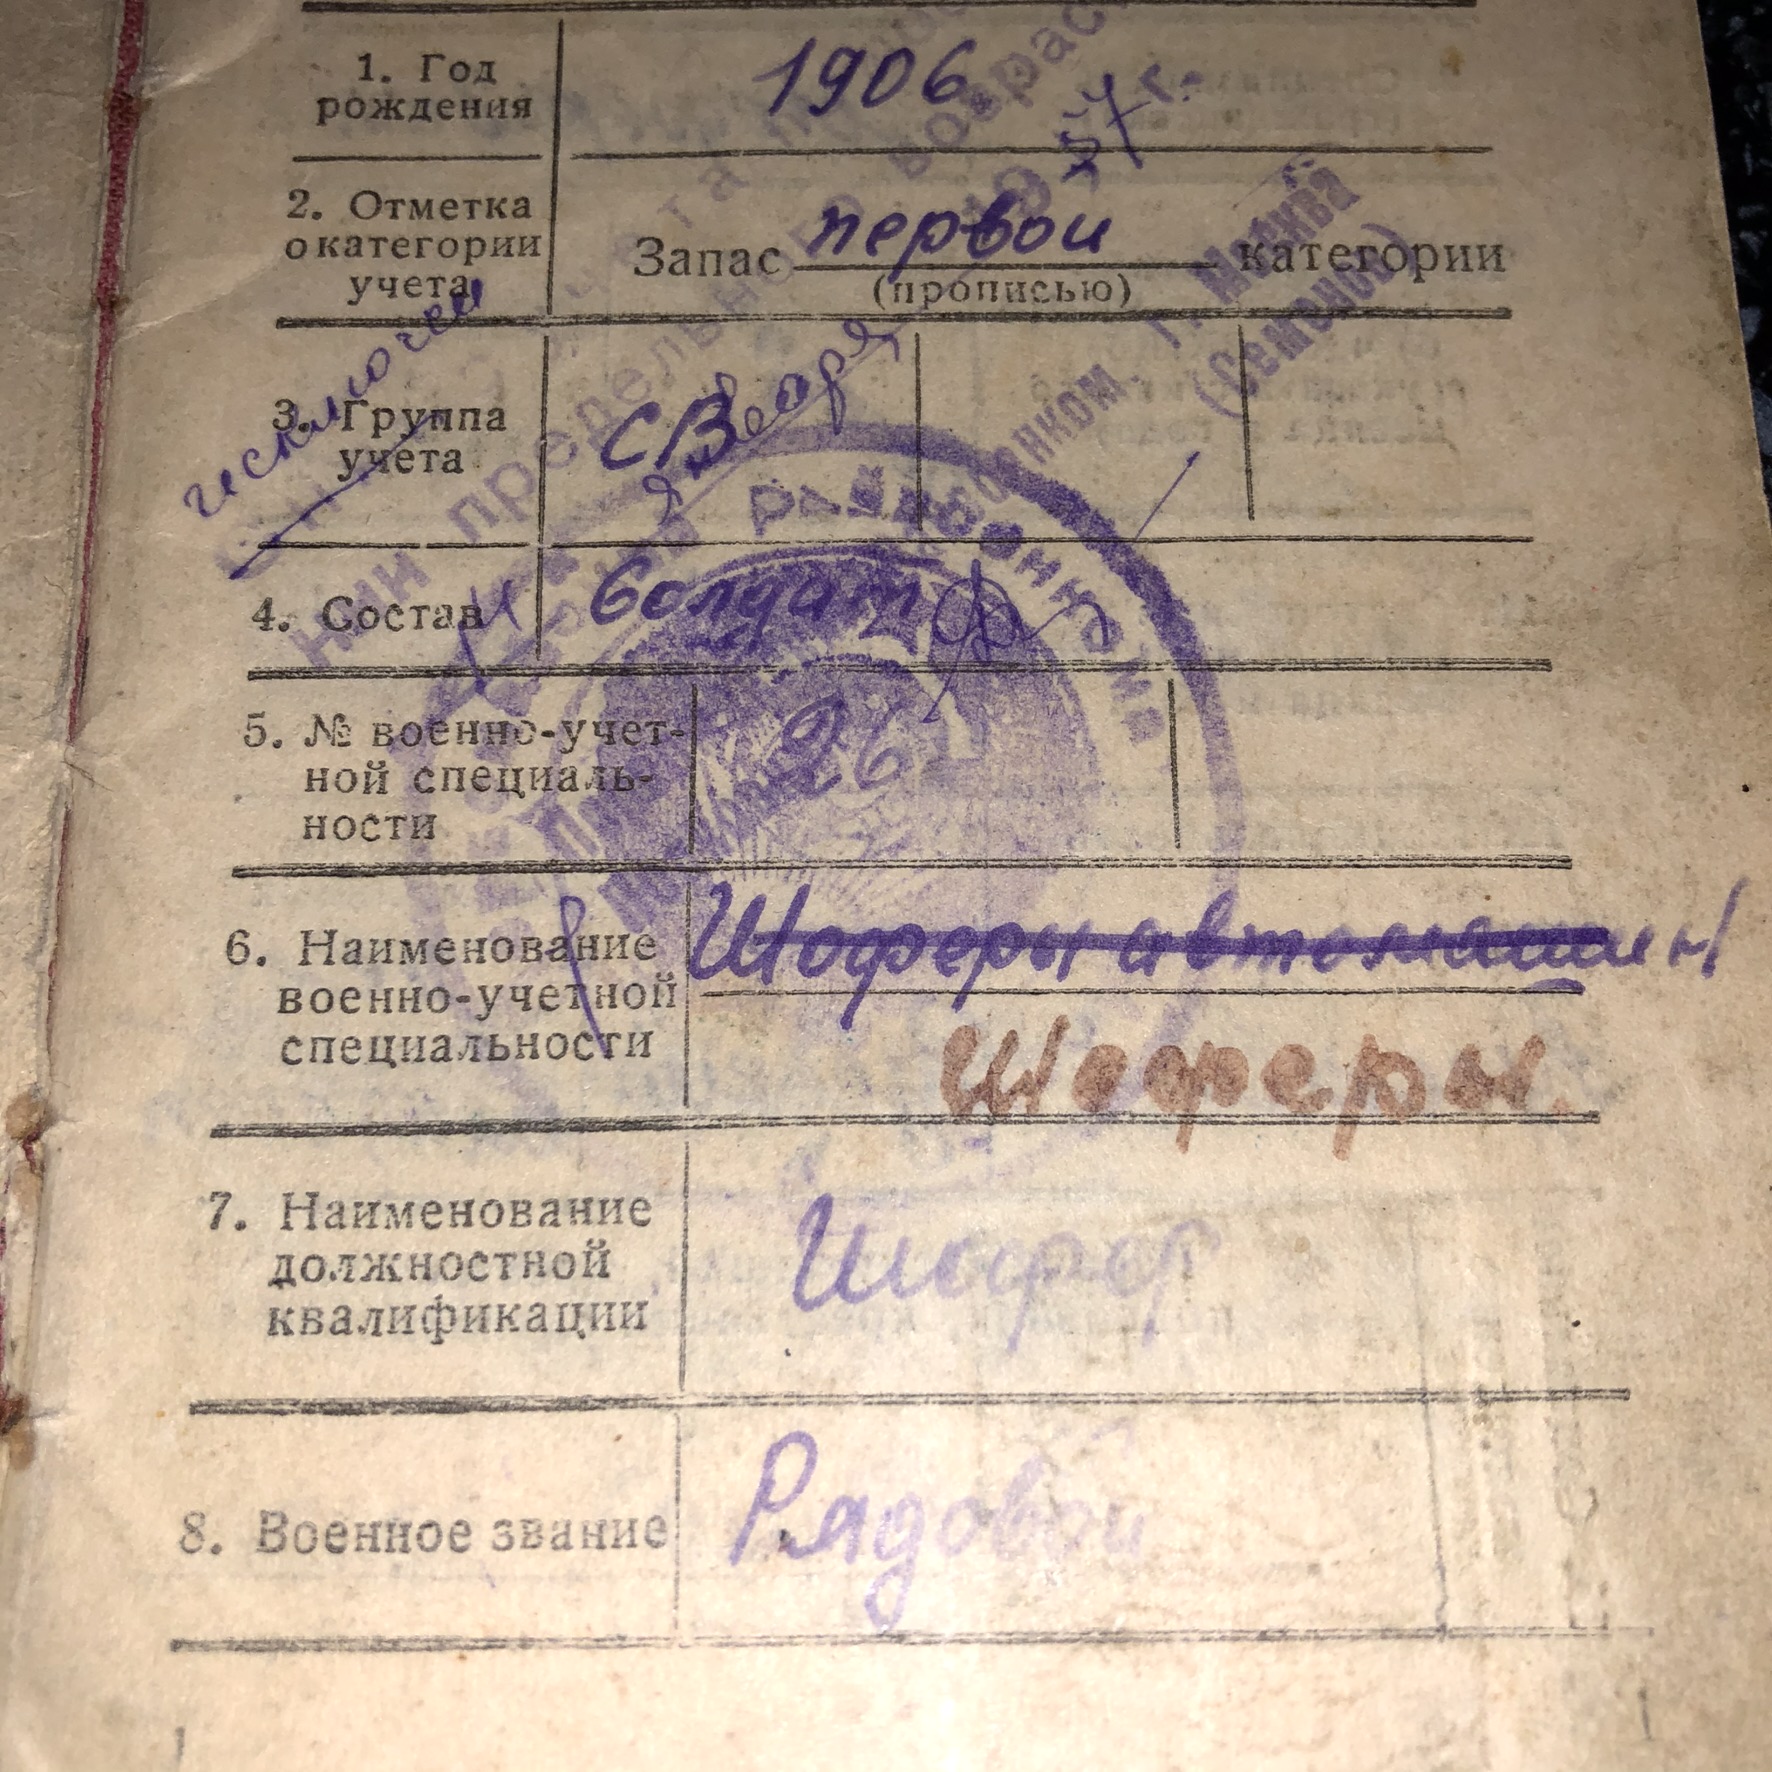 1. Год
рождения
1906
2. Отметка
о категории
учета
Запас первой категории
(прописью)
исключен
3. Группа
учета
СВ
января
57 г.
предельного возраста
Москва
(Семенов)
4. Состав
Солдат
5. № военно-учет-
ной специаль-
ности
26
6. Наименование
военно-учетной
специальности
Шоферы автомашин
Шоферы.
7. Наименование
должностной
квалификации
Шофер
8. Военное звание
Рядовой